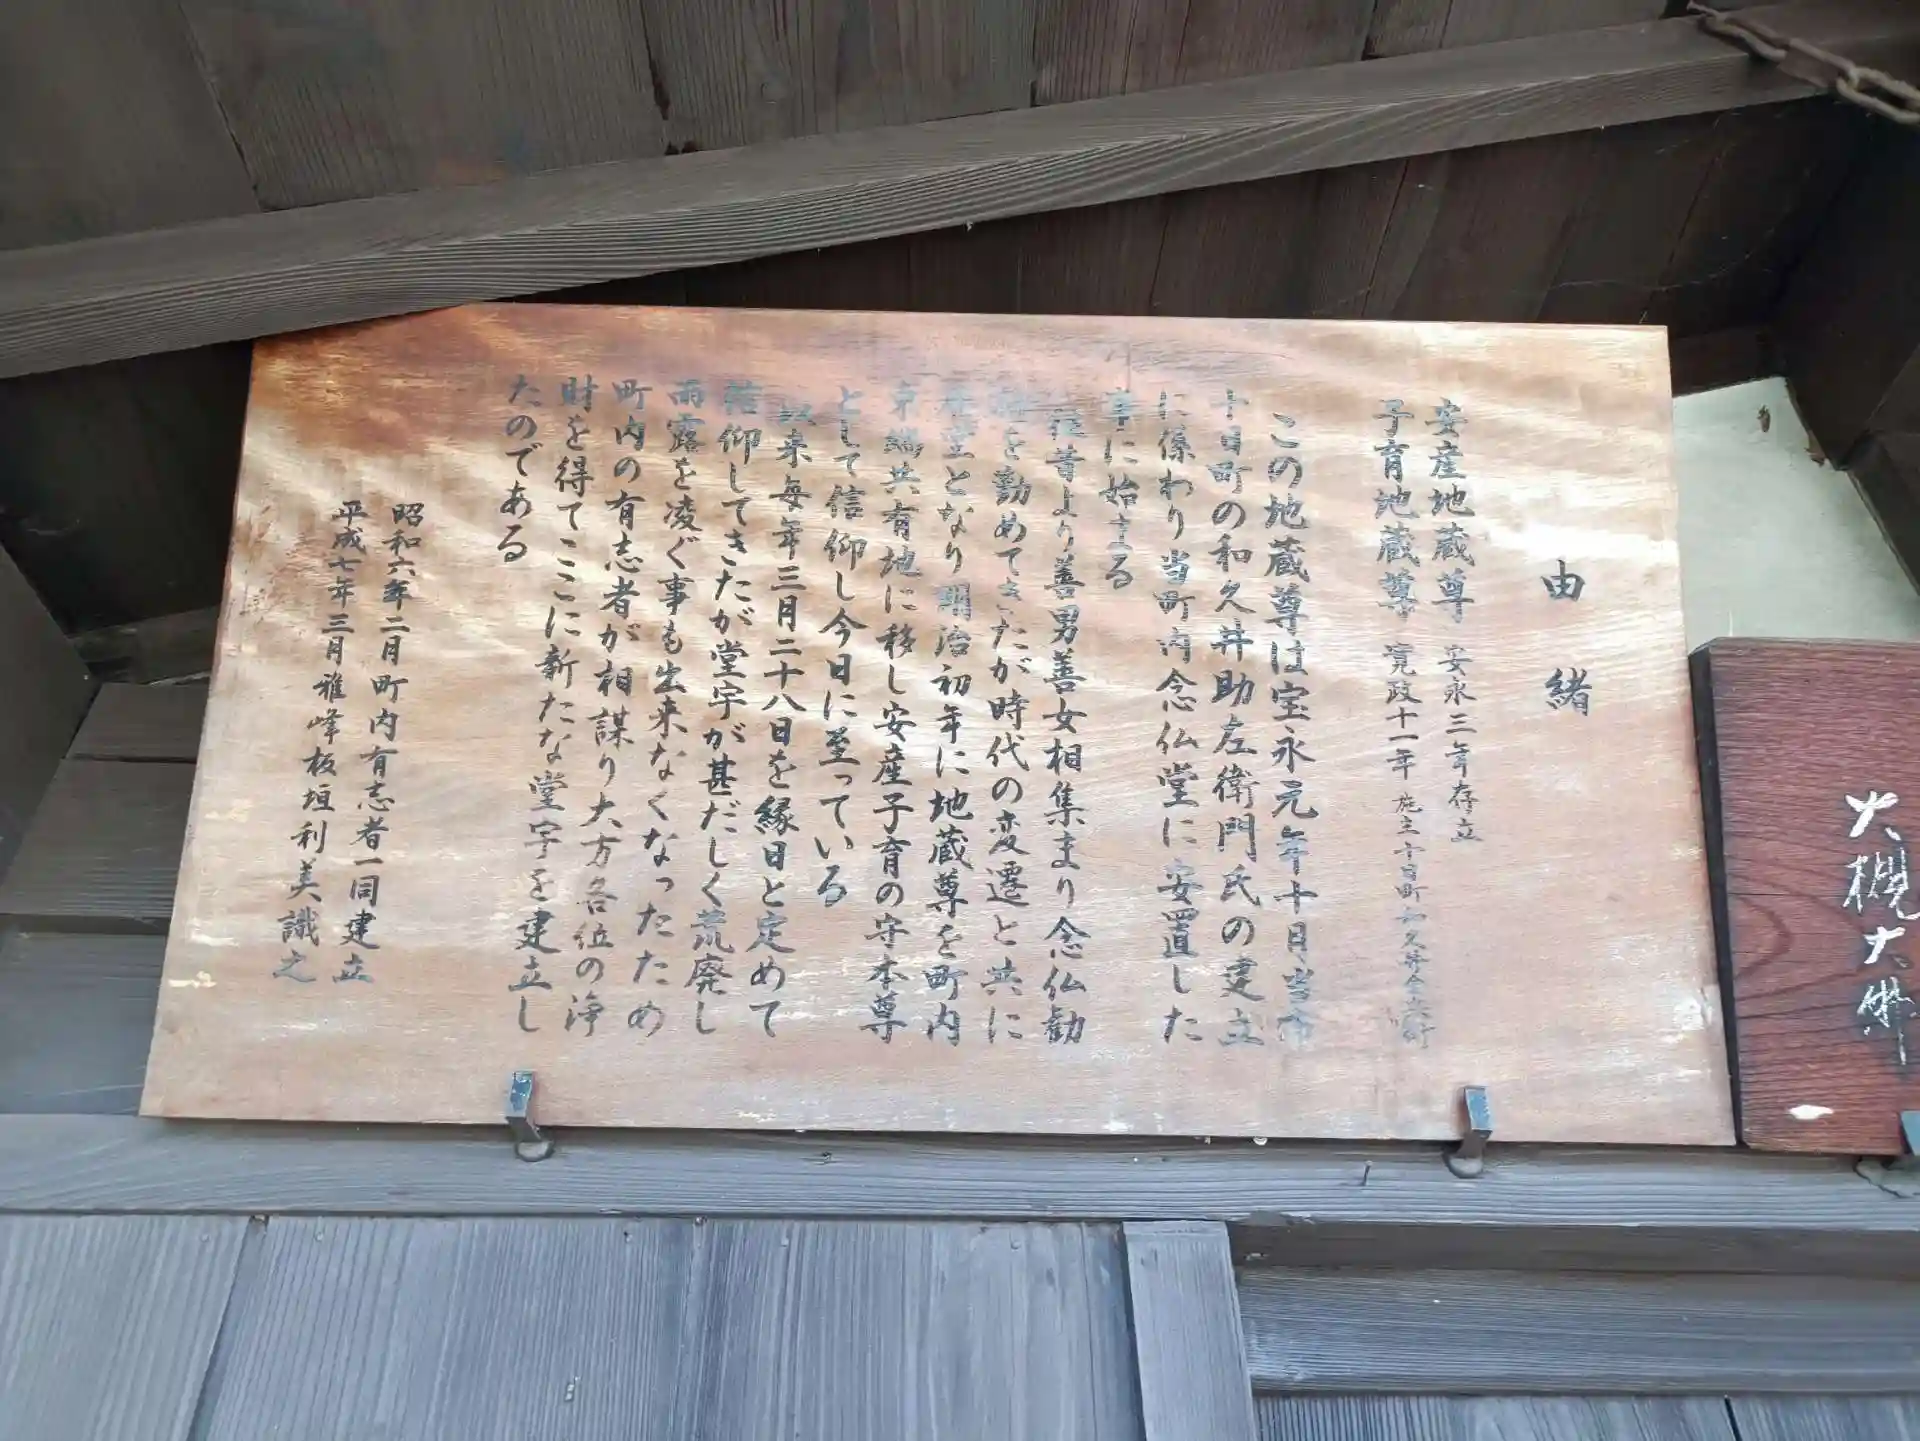 由緒
安産地蔵尊 安永三年存立
子育地蔵尊 寛政十一年 施主十日町和久井
この地蔵尊は宝永元年十月当市
十日町の和久井助左衛門氏の建立
に係わり当町内念仏堂に安置した
事に始まる
往昔より善男善女相集まり念仏勧
を勤めてきたが時代の変遷と共に
堂となり明治初年に地蔵尊を町内
東端共有地に移し安産子育の守本尊
として信仰し今日に至っている
以来毎年三月二十八日を縁日と定めて
信仰してきたが堂宇が甚だしく荒廃し
雨露を凌ぐ事も出来なくなったため
町内の有志者が相謀り大方各位の浄
財を得てここに新たな堂宇を建立し
たのである
昭和六年二月町内有志者一同建立
平成七年三月雅峰板垣利美識之
大槻大